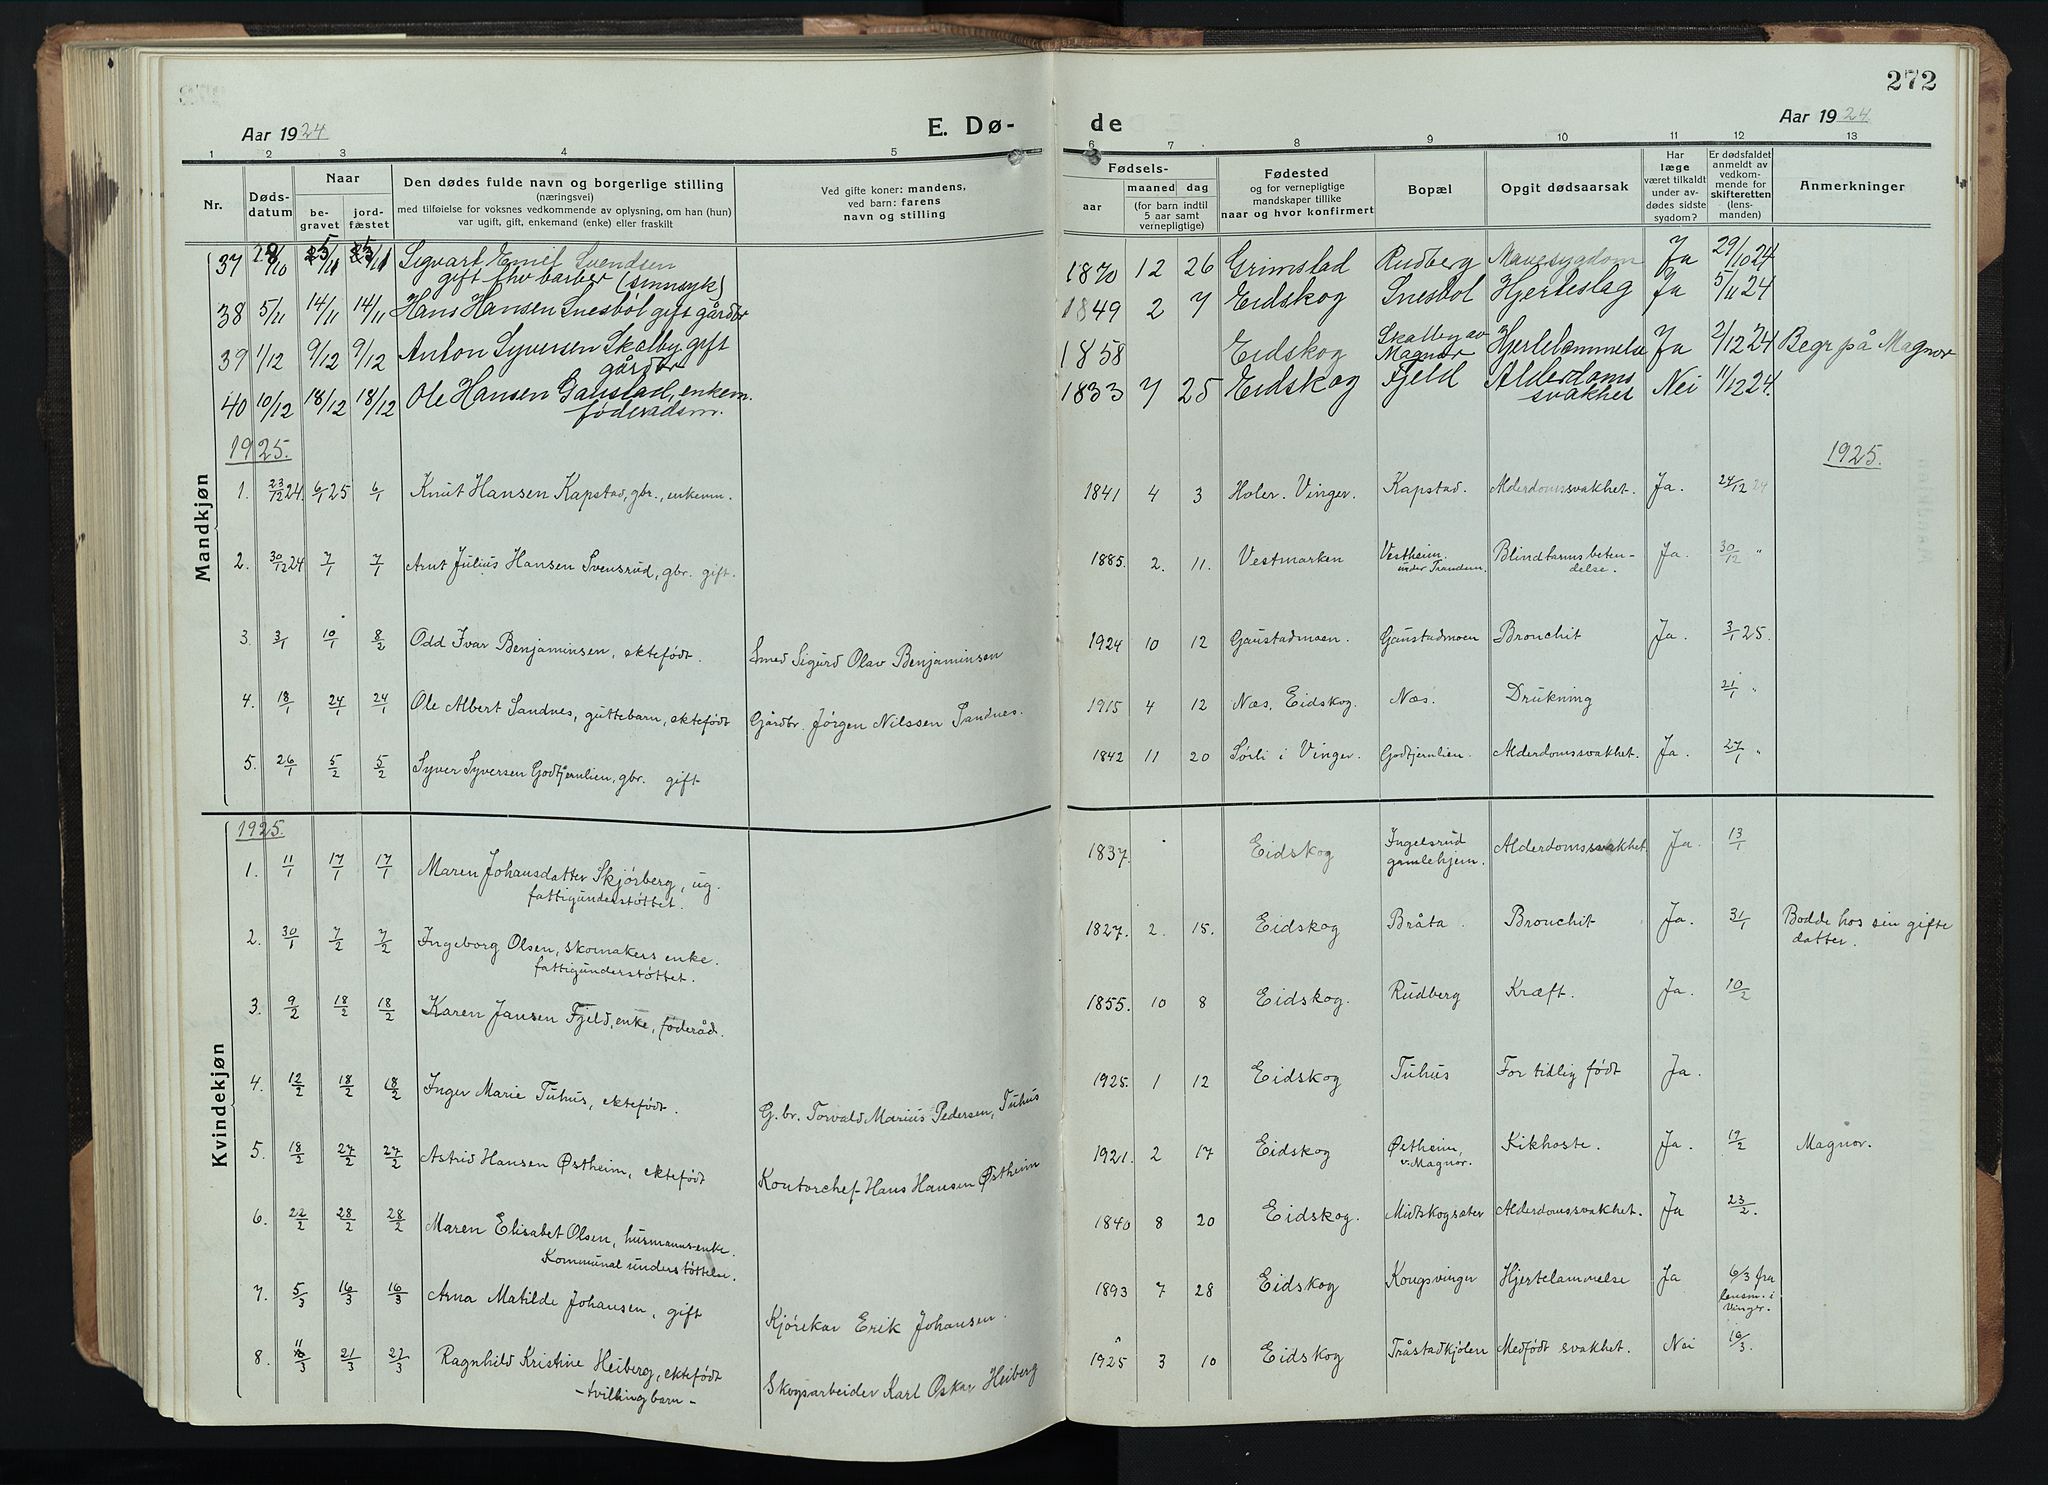 272
Aar 1924
E. Dø-
de
Aar 1924
1 2 3 4 5
6 7 8 9 10 11 12 13
Nr.
Døds-
datum
Naar
be-
gravet
jord-
fæstet
Den dødes fulde navn og borgerlige stilling
(næringsvei)
med tilføielse for voksnes vedkommende av oplysning, om han (hun)
var ugift, gift, enkemand (enke) eller fraskilt
Ved gifte koner: mandens,
ved barn: farens
navn og stilling
Fødsels-
aar
maaned dag
(for barn indtil
5 aar samt
vernepligtige)
Fødested
og for vernepligtige
mandskaper tillike
naar og hvor konfirmert
Bopæl
Opgit dødsaarsak
Har
læge
været tilkaldt
under av-
dødes sidste
sygdom?
Er dødsfaldet
anmeldt av
vedkom-
mende for
skifteretten
(lens-
manden)
Anmerkninger
Mandkjøn
37 28/10 5/11 5/11 Sigvart Emil Svendsen 1870 12 26 Grimstad Rudberg Mavesygdom Ja 29/10 24
gift fhv barber (sinnsyk)
38 5/11 14/11 14/11 Hans Hansen Snesbøl gift gårdbr 1849 2 7 Eidskog Snesbøl Hjerteslag Ja 5/11 24
39 1/12 9/12 9/12 Anton Syversen Skalby gift 1858 Eidskog Skalby av Hjertelammelse Ja 2/12 24 Begr på Magnor
gårdbr Magnor
40 10/12 18/12 18/12 Ole Hansen Gaustad, enkem. 1833 7 25 Eidskog Fjeld Alderdoms Nei 11/12 24.
føderådsm. svakhet
1925. 1925.
1. 23/12 24 6/1 25 6/1 Knut Hansen Kapstad, gbr., enkemn. 1841 4 3 Holer. Vinger. Kapstad. Alderdomssvakhet. Ja. 24/12 24
2. 30/12 24 7/1 7/1 Arnt Julius Hansen Svensrud, gbr. gift. 1885. 2. 11. Vestmarken Vestheim. Blindtarmsbeten- Ja. 30/12 "
under Trandem. delse.
3. 3/1 10/1 8/2 Odd Ivar Benjaminsen, ektefødt. Smed Sigurd Olav Benjaminsen 1924 10 12 Gaustadmoen. Gaustadmoen Bronchit Ja. 3/1 25.
4. 18/1 24/1 24/1 Ole Albert Sandnes, guttebarn, ektefødt Gårdbr. Jørgen Nilssen Sandnes. 1915 4 12 Næs, Eidskog. Næs. Drukning 21/1 "
5. 26/1 5/2 5/2 Syver Syversen Godtjernlien, gbr. gift 1842 11 20 Sørli i Vinger. Godtjernlien. Alderdomssvakhet. Ja. 27/1 "
Kvindekjøn
1925.
1. 11/1 17/1 17/1 Maren Johansdatter Skjørberg, ug. 1837. Eidskog Ingelsrud Alderdomssvakhet. Ja. 13/1
fattigunderstøttet. gamlehjem.
2. 30/1 7/2 7/2 Ingeborg Olsen, skomakers enke. 1827. 2. 15. Eidskog Bråta. Bronchit Ja. 31/1 Bodde hos sin gifte
fattigunderstøttet. datter.
3. 9/2 18/2 18/2 Karen Jansen Fjeld, enke, føderåd. 1855. 10 8 Eidskog. Rudberg Kræft. Ja. 10/2
4. 12/2 18/2 18/2 Inger Marie Tuhus, ektefødt. G.br. Torvald Marius Pedersen, Tuhus 1925. 1 12 Eidskog Tuhus For tidlig født Ja.
5. 18/2 27/2 27/2 Astrid Hansen Østheim, ektefødt Kontorchef Hans Hansen Østheim 1921. 2 17 Eidskog Østheim, Kikhoste. Ja. 19/2 Magnor.
v. Magnor.
6. 22/2 28/2 28/2 Maren Elisabet Olsen, husmannsenke. 1840 8 20 Eidskog. Midtskogsæter Alderdomssvakhet. Ja 23/2.
Kommunal understøttelse.
7. 5/3 16/3 16/3 Arna Matilde Johansen, gift Kjørekar Erik Johansen. 1893 7 28 Eidskog Kongsvinger Hjertelammelse Ja 6/3 fra
lensm. i
Vinger.
8. 11/3 21/3 21/3 Ragnhild Kristine Heiberg, ektefødt Skogsarbeider Karl Oskar Heiberg 1925 3 10 Eidskog Tråstadkjølen Medfødt svakhet. Nei 16/3.
- tvillingbarn -